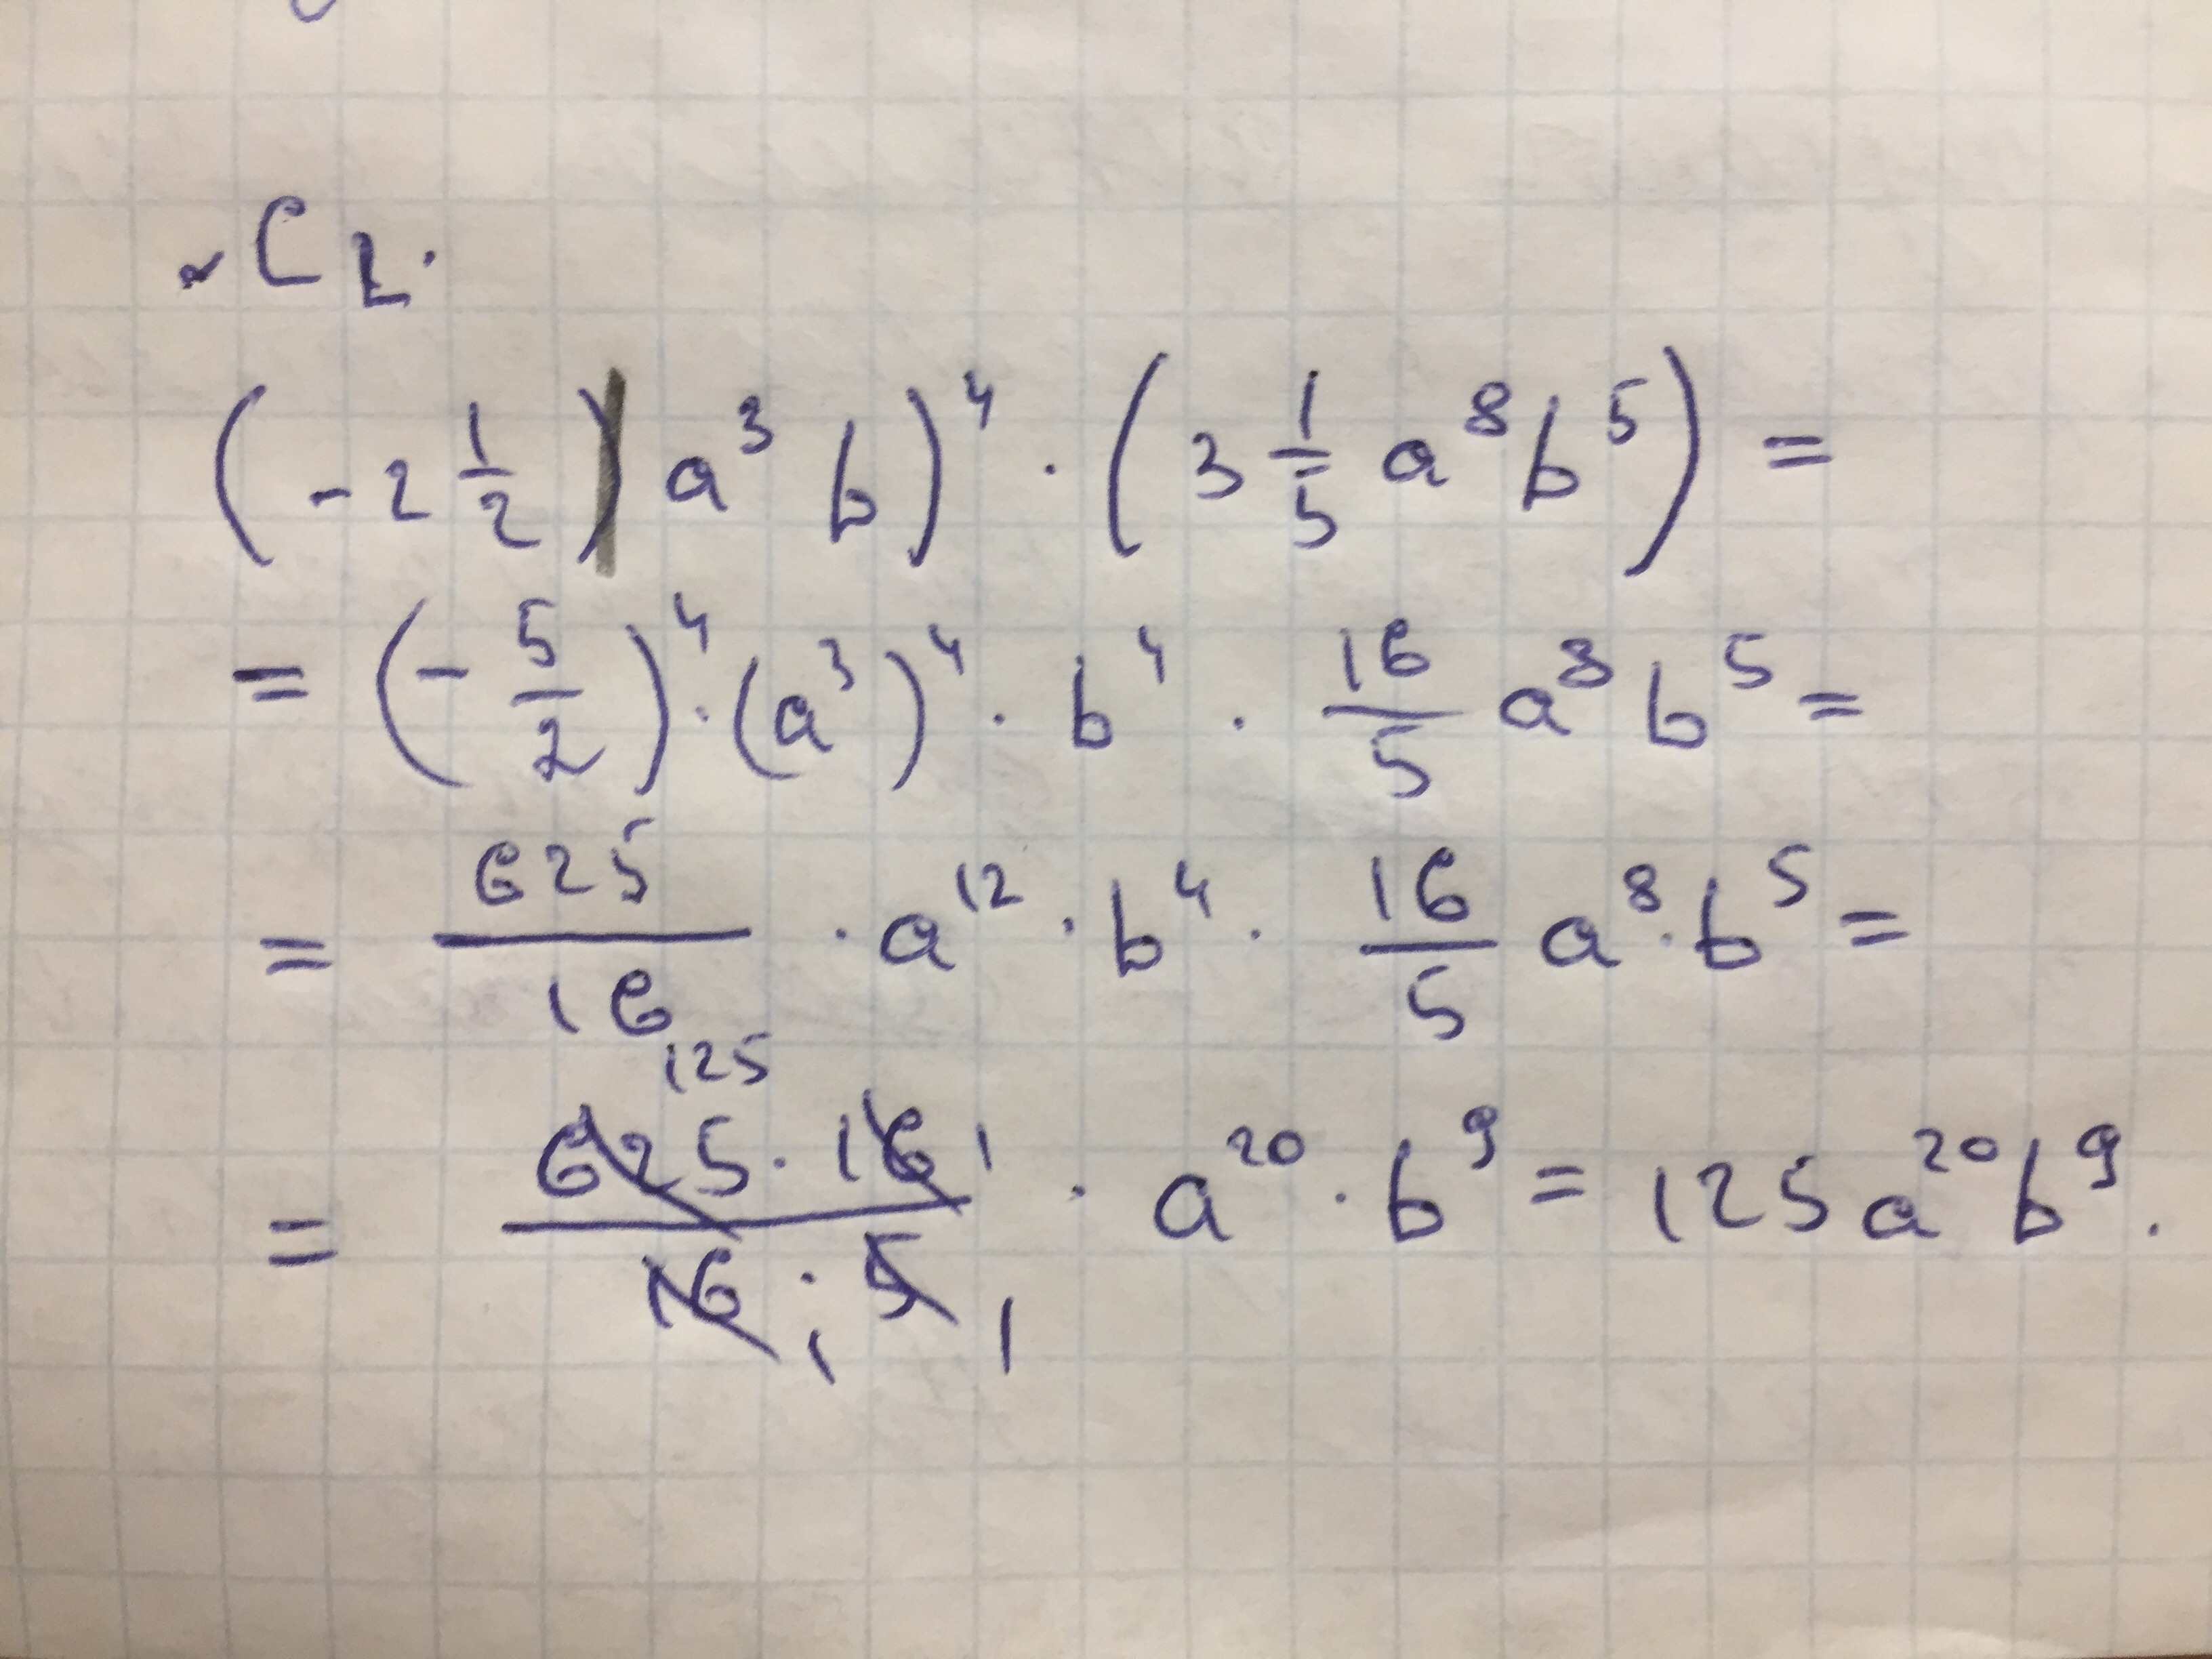 C 2.
(-2 1/2 a³ b)⁴ · (3 1/5 a⁸ b⁵) =
= (-5/2)⁴ · (a³)⁴ · b⁴ · 16/5 a⁸ b⁵ =
= 625/16 · a¹² · b⁴ · 16/5 a⁸ · b⁵ =
125
= 625 · 16 1 / 16 1 · 5 1 · a²⁰ · b⁹ = 125 a²⁰ b⁹.